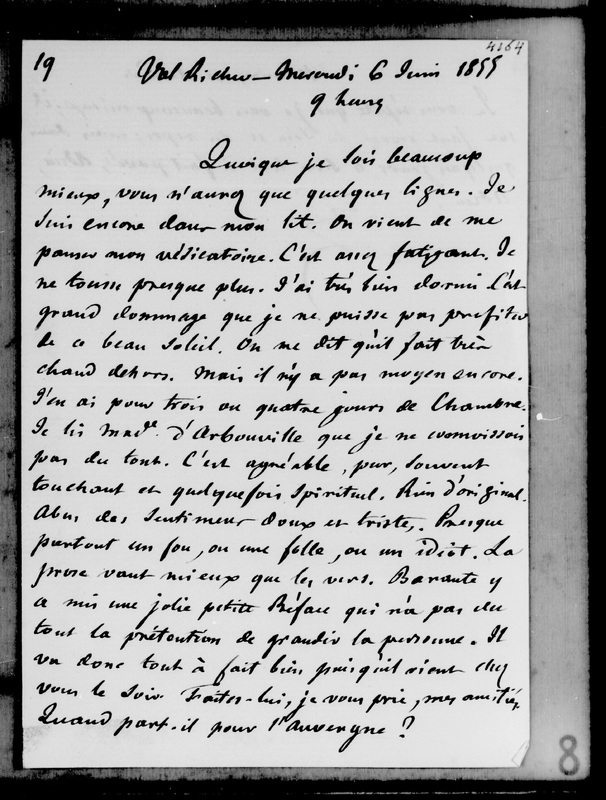 4164
19 Val Richer - Mercredi 6 Juin 1855
9 heures
Quoique je sois beaucoup
mieux, vous n'aurez que quelques lignes. Je
suis encore dans mon lit. On vient de me
panser mon vésicatoire. C'est assez fatigant. Je
ne tousse presque plus. J'ai très bien dormi. C'est
grand dommage que je ne puisse pas profiter
de ce beau soleil. On me dit qu'il fait très
chaud dehors. Mais il n'y a pas moyen encore.
J'en ai pour trois ou quatre jours de Chambre.
Je lis Made. d'Arbouville que je ne connoissois
pas du tout. C'est agréable, pur, souvent
touchant et quelquefois spirituel. Rien d'original.
Abus des sentimens doux et tristes. Presque
partout un fou, ou une folle, ou un idiot. La
prose vaut mieux que les vers. Barante y
a mis une jolie petite Préface qui n'a pas du
tout la prétention de grandir la personne. Il
va donc tout à fait bien puisqu'il vient chez
vous le soir. Faites-lui, je vous prie, mes amitiés.
Quand part-il pour l'Auvergne ?
8